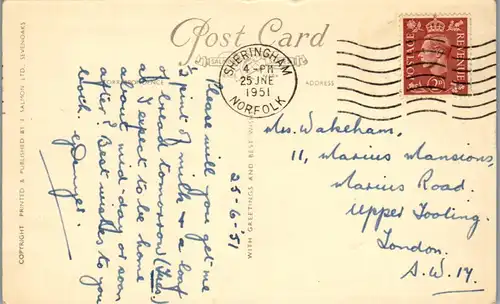 Post Card
CORRESPONDENCE
ADDRESS
SHERINGHAM
4 - PM
25 JNE
1951
NORFOLK
POSTAGE
REVENUE
Please will you get me
½ pint of milk & a loaf
of bread tomorrow (Tues.)
as I expect to be home
about mid-day or soon
after. Best wishes to you
both.
25-6-51
Mrs. Wakeham,
11, Marius Mansions,
Marius Road.
Upper Tooting.
London.
S.W.17.
WITH GREETINGS AND BEST WISHES
COPYRIGHT PRINTED & PUBLISHED BY J. SALMON LTD., SEVENOAKS